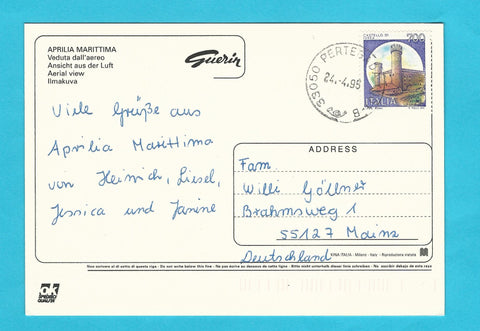 APRILIA MARITTIMA
Veduta dall'aereo
Ansicht aus der Luft
Aerial view
Ilmakuva
Guerin
700
ITALIA
33050 PERTE
24.4.95
Viele Grüße aus
Aprilia Marittima
von Heinrich, Liesel,
Jessica und Janine
ADDRESS
Fam.
Willi Göllner
Brahmsweg 1
55127 Mainz
Deutschland
KINA ITALIA - Milano - Italy - Riproduzione vietata
Non scrivere al di sotto di questa riga - Do not write below this line - Ne pas écrire au dessous de cette ligne - Bitte nicht unterhalb dieser Linie schreiben - No escribir debajo de esta raya
ok